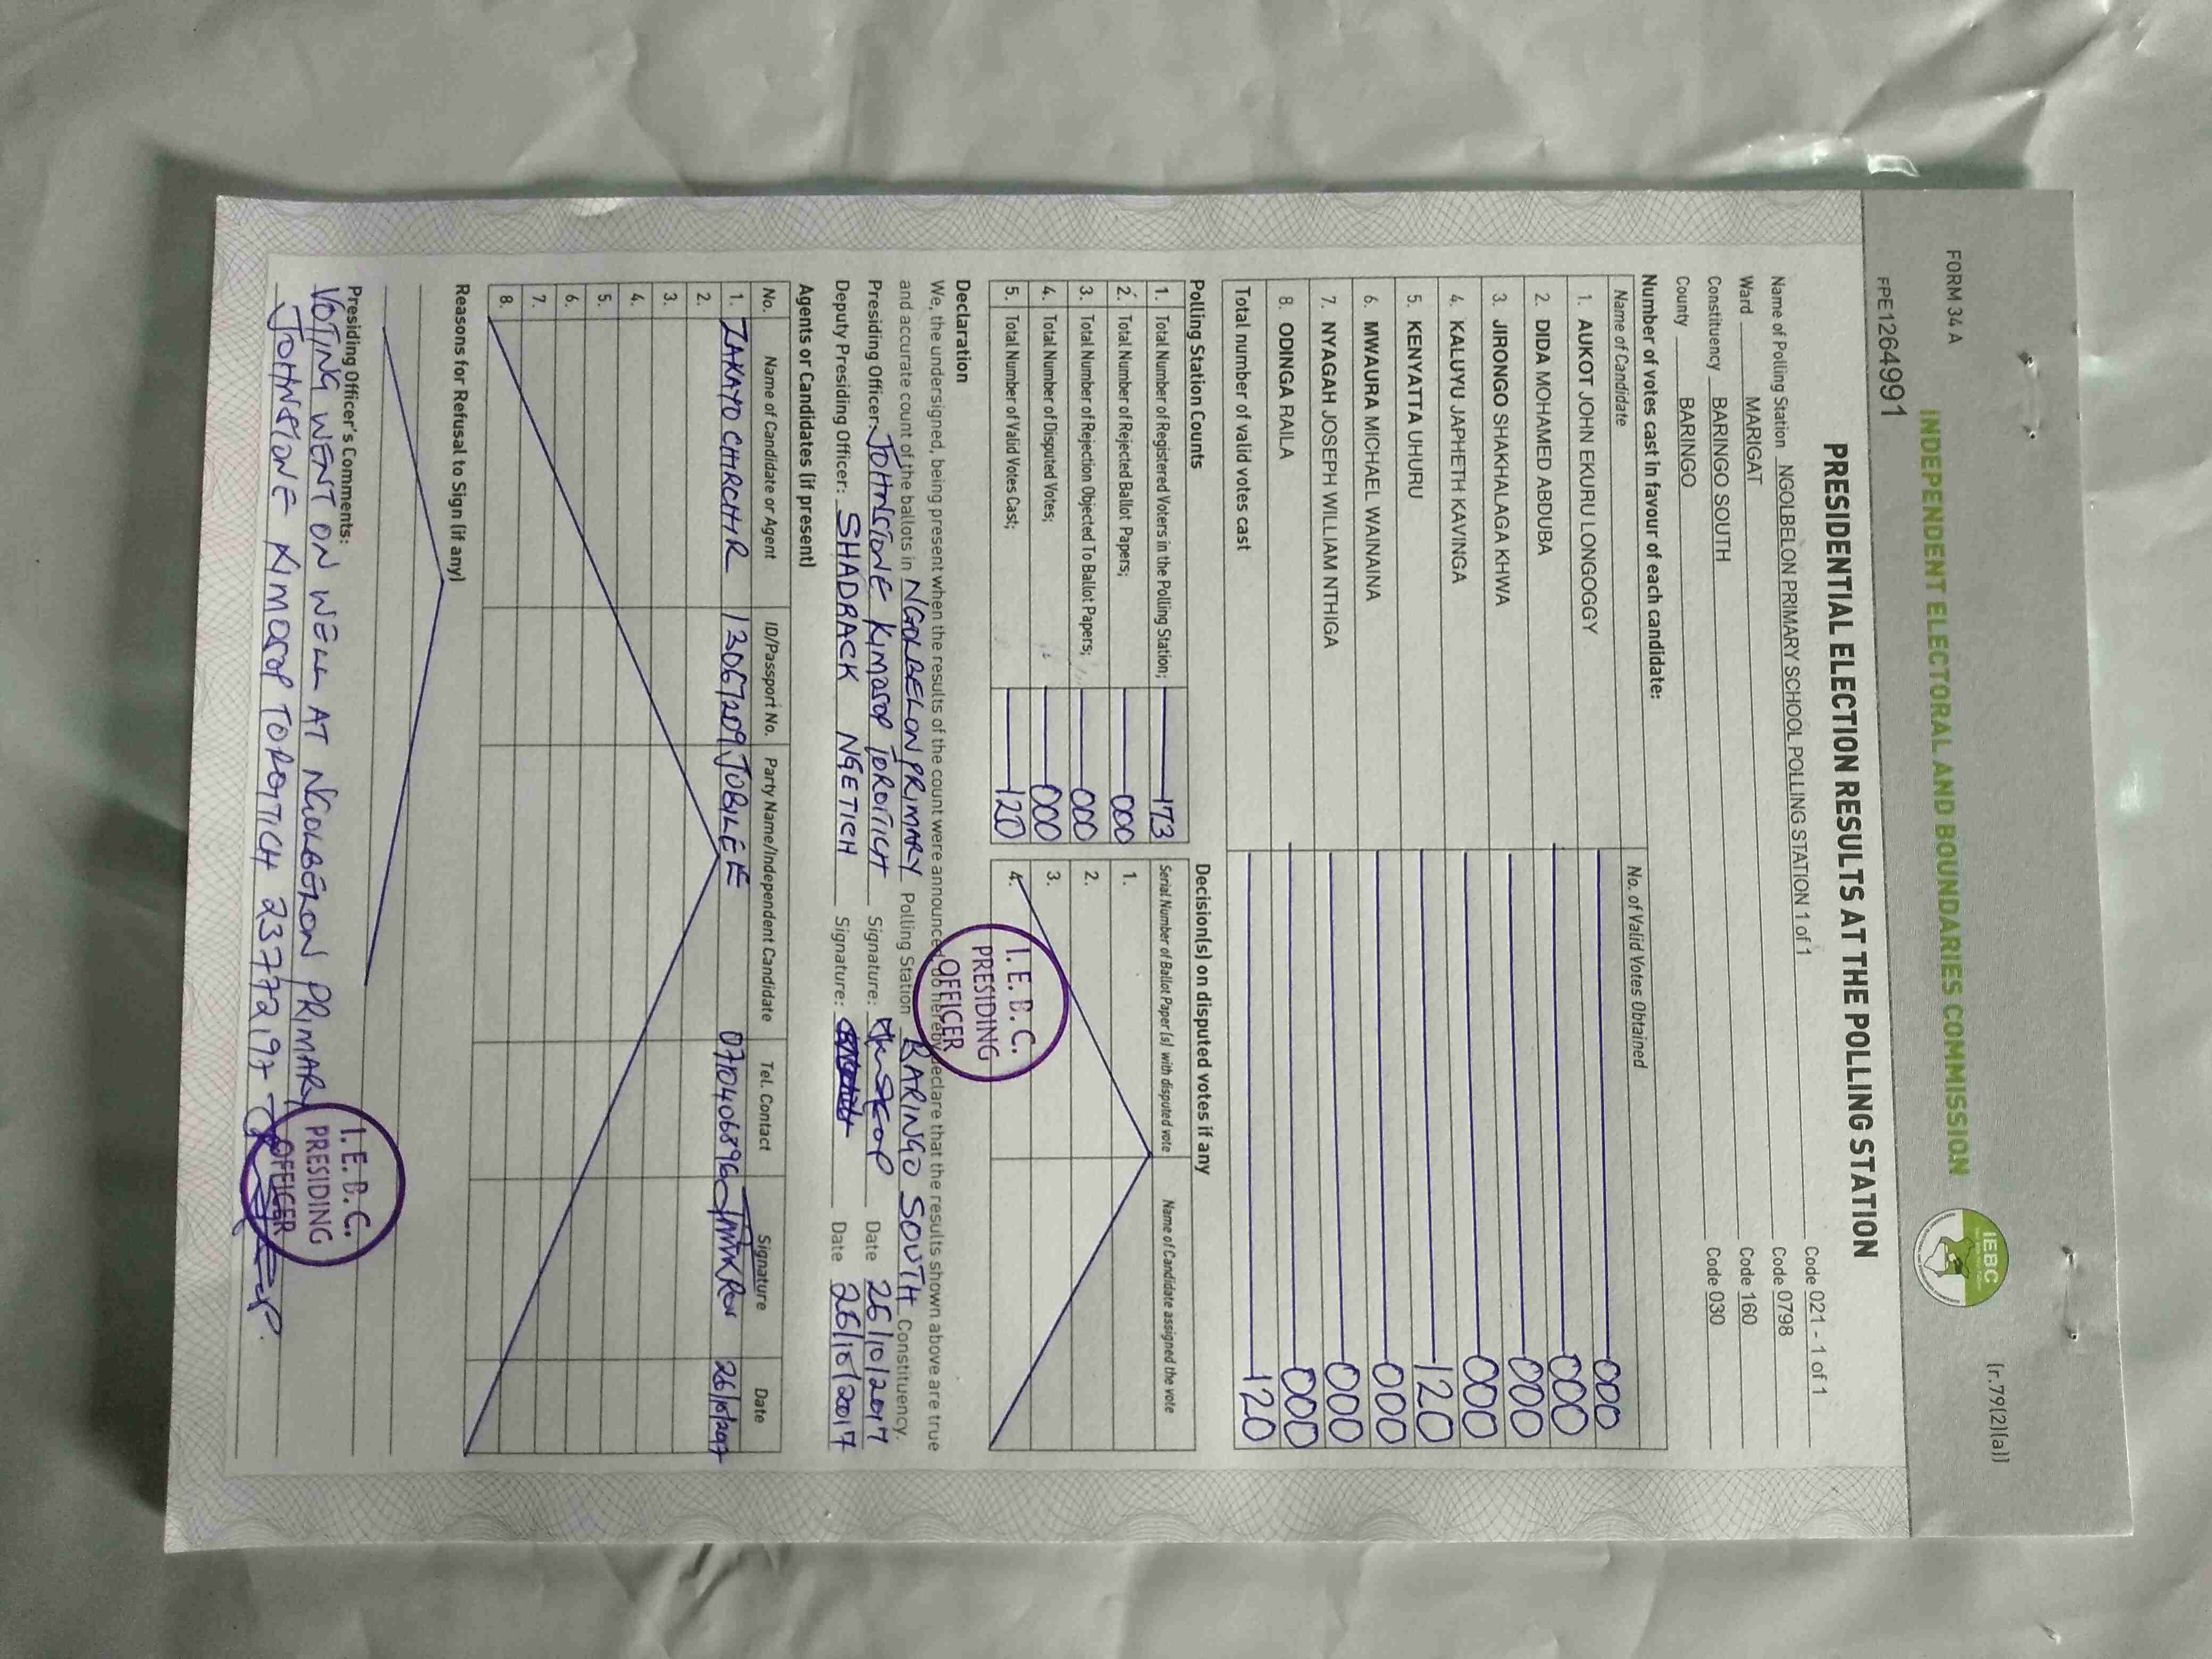 FORM 34 A
(r.79(2)(a))
INDEPENDENT ELECTORAL AND BOUNDARIES COMMISSION
IEBC
FPE1264991
PRESIDENTIAL ELECTION RESULTS AT THE POLLING STATION
Code 021 - 1 of 1
Name of Polling Station NGOLBELON PRIMARY SCHOOL POLLING STATION 1 of 1 Code 0798
Ward MARIGAT Code 160
Constituency BARINGO SOUTH Code 030
County BARINGO
Number of votes cast in favour of each candidate:
Name of Candidate No. of Valid Votes Obtained
1. AUKOT JOHN EKURU LONGOGGY 000
2. DIDA MOHAMED ABDUBA 000
3. JIRONGO SHAKHALAGA KHWA 000
4. KALUYU JAPHETH KAVINGA 000
5. KENYATTA UHURU 120
6. MWAURA MICHAEL WAINAINA 000
7. NYAGAH JOSEPH WILLIAM NTHIGA 000
8. ODINGA RAILA 000
Total number of valid votes cast 120
Polling Station Counts
1. Total Number of Registered Voters in the Polling Station; 173
2. Total Number of Rejected Ballot Papers; 000
3. Total Number of Rejection Objected To Ballot Papers; 000
4. Total Number of Disputed Votes; 000
5. Total Number of Valid Votes Cast; 120
Decision(s) on disputed votes if any
Serial Number of Ballot Paper(s) with disputed vote Name of Candidate assigned the vote
1.
2.
3.
4.
I.E.B.C.
PRESIDING
OFFICER
Declaration
We, the undersigned, being present when the results of the count were announced, do hereby declare that the results shown above are true
and accurate count of the ballots in NGOLBELON PRIMARY Polling Station BARINGO SOUTH Constituency.
Presiding Officer: JOHNSTONE KIMOSOP TOROITICH Signature: Date 26/10/2017
Deputy Presiding Officer: SHADRACK NGETICH Signature: Date 26/10/2017
Agents or Candidates (if present)
No. Name of Candidate or Agent ID/Passport No. Party Name/Independent Candidate Tel. Contact Signature Date
1. ZAKAYO CHIRCHIR 13067209 JUBILEE 0704068960 26/10/2017
2.
3.
4.
5.
6.
7.
8.
Reasons for Refusal to Sign (if any)
Presiding Officer's Comments:
VOTING WENT ON WELL AT NGOLBELON PRIMARY
JOHNSTONE KIMOSOP TOROITICH 23772197
I.E.B.C.
PRESIDING
OFFICER